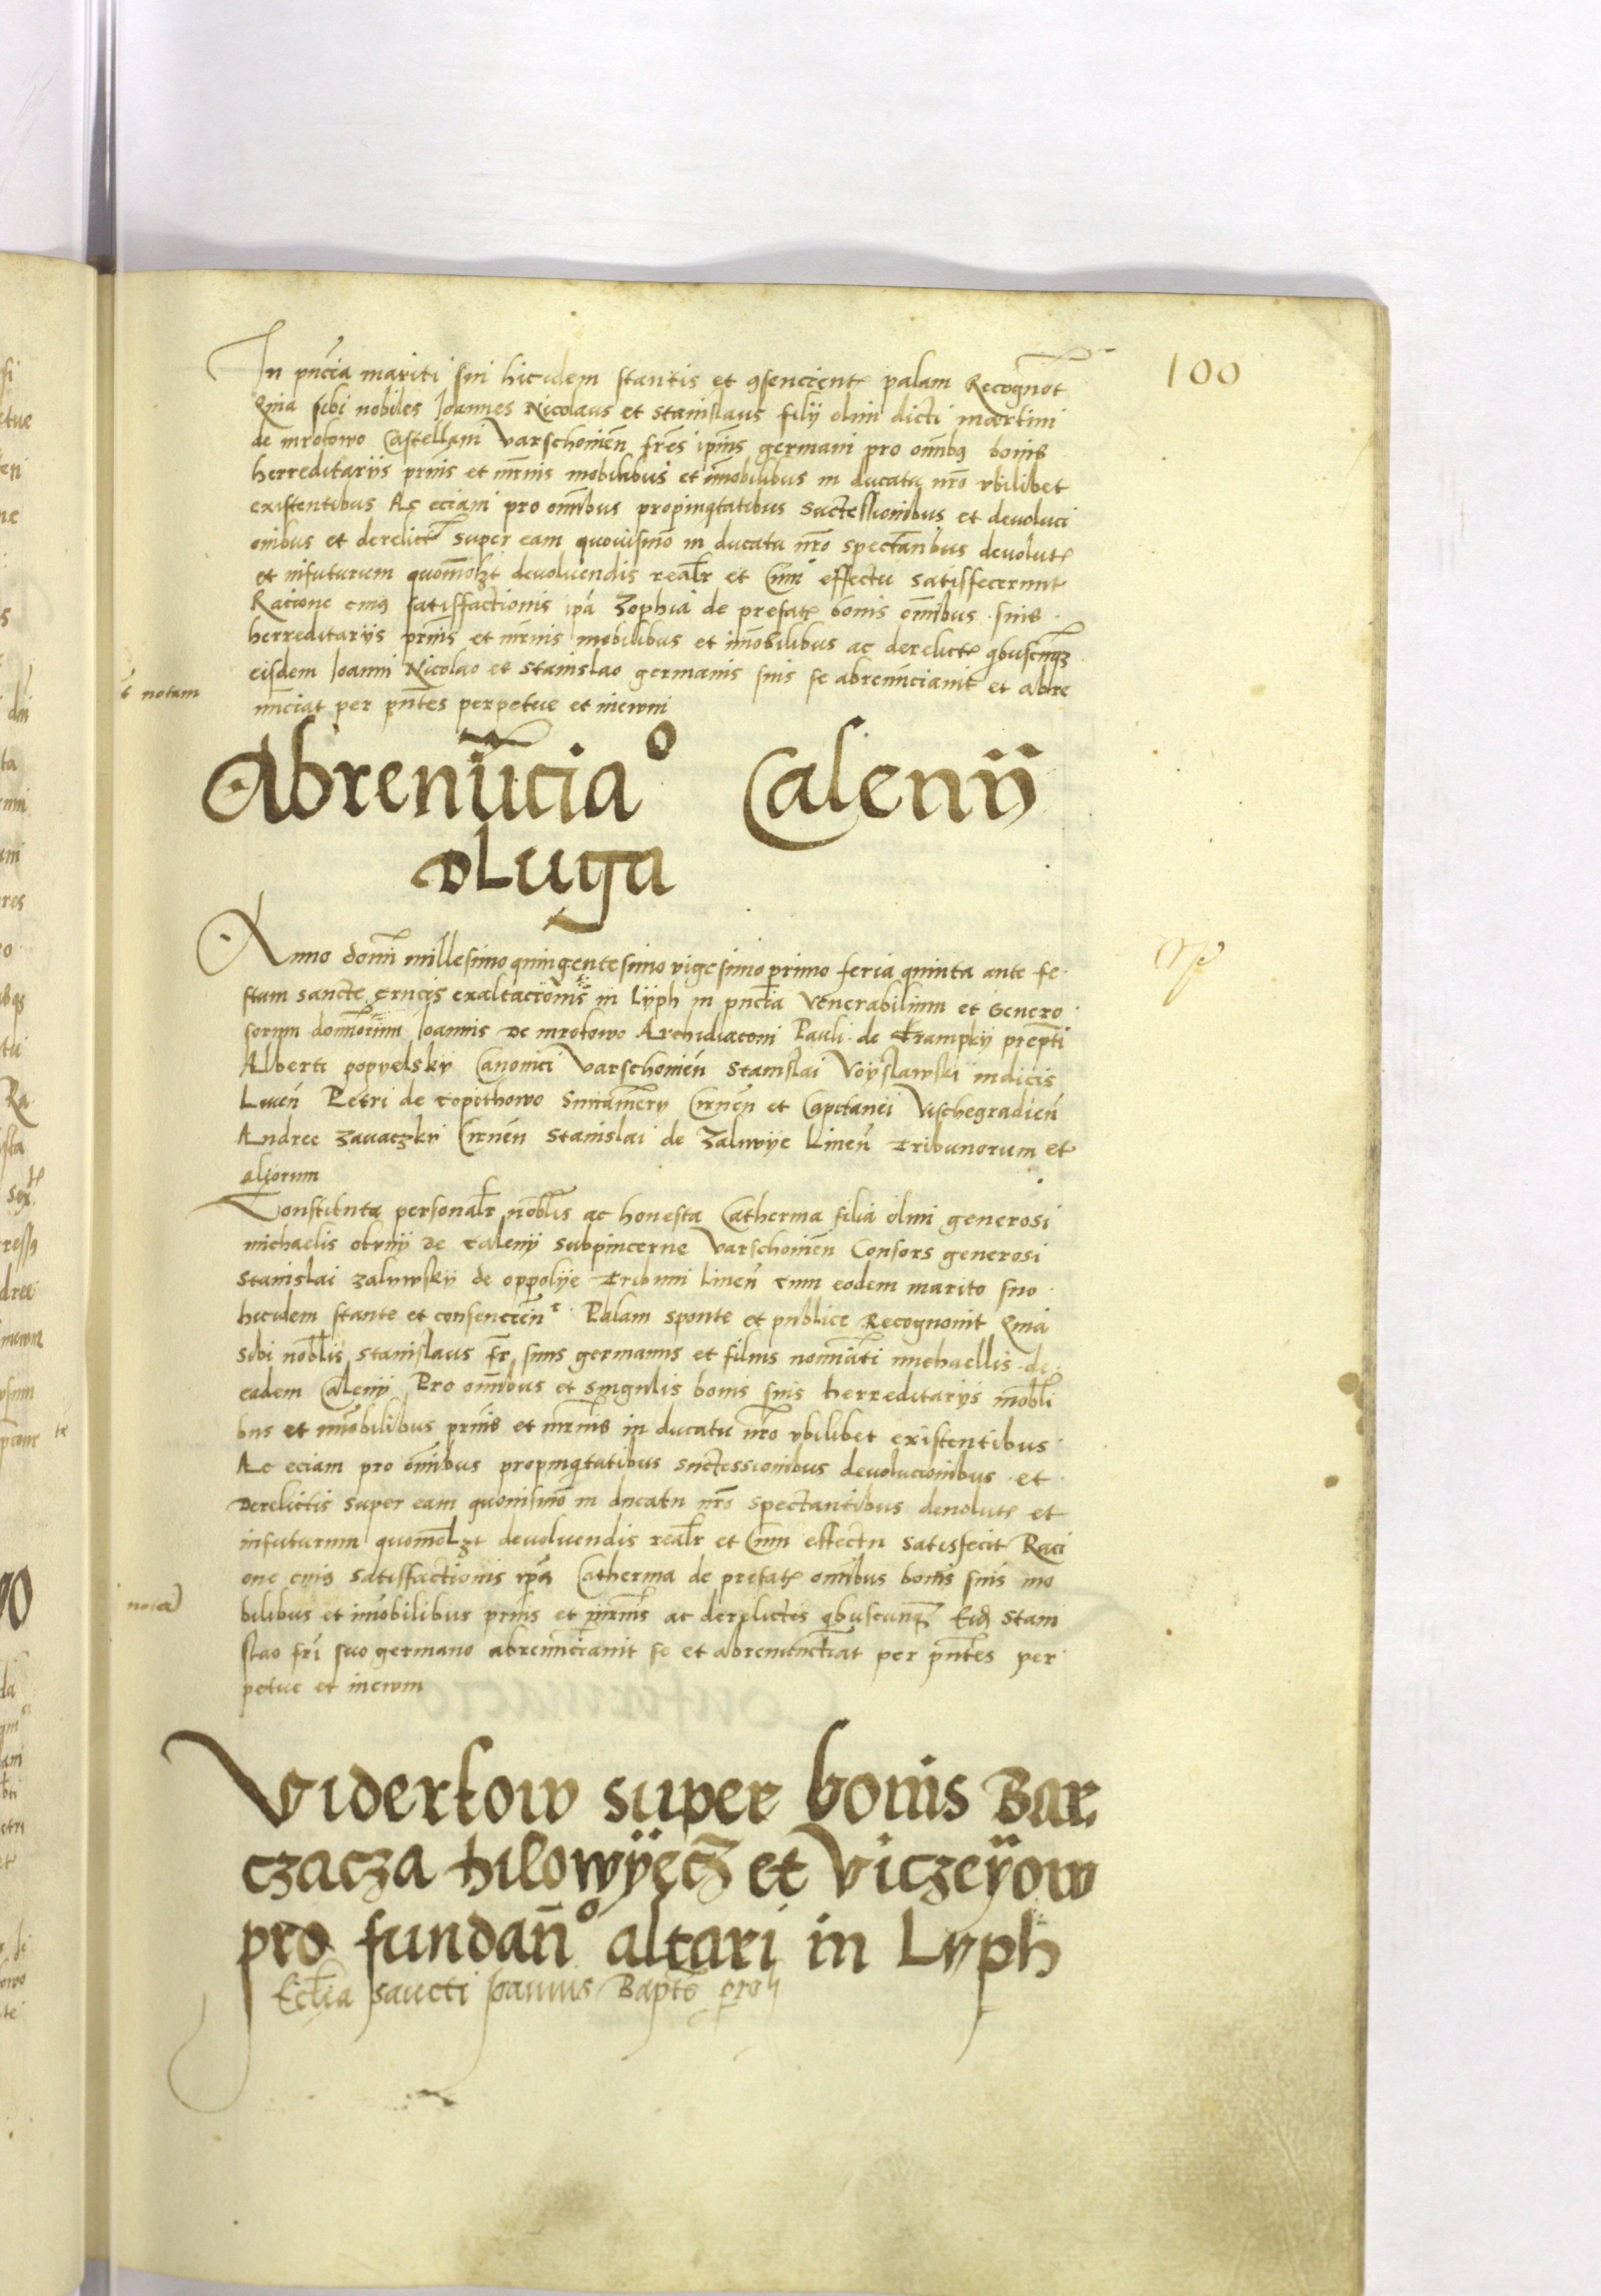 100
In pñcia mariti sui hicidem stantis et ɔsencient palam Recognot
Quia sibi nobiles Joannes Nicolaus et Stanislaus filij olim dicti martini
de mrokowo Castellani Varschoɯien fres ipius germani pro omībꝫ bonis
herreditarijs prnis et mrnis mobilibus et imobilibus in ducatu nro vbilibet
existentibus Ac eciam pro omibus propinqtatibus Successionibus et devoluci
onibus et derelict super eam quovismo in ducatu nro spectantibus devolut
et infuturum quomolꝫt devoluendis realr et Cum effectu satisfecerunt
Racione cuiꝰ satisffactionis ipa Zophia de prefat bonis omnibus suis
herreditarijs prnis et mrnis mobilibus et imobilibus ac derelict qbuscunqꝫ
eisdem Joanni Nicolao et Stanislao germanis suis se abrenunciauit et abre
nunciat per pntes perpetue et inewm
notam
Abrenūcia° Calenij
Dluga
Anno domi millesimo quingentesimo vigesimo primo feria quinta ante fe
stum sancte crucis exaltacionis in Lyph in pncia Venerabilium et Genero
sorum dominorum Joannis De mrokowo Archidiaconi Pauli de Krampky prepti
Alberti popyelsky Canonici Varschouien Stanislai Voyslawski iudicis
Liuen Petri de copithowo Succamery Cirnen et Capitanei Vischegradien
Andree Zavaczky Cirnen Stanislai de Zalwye Liuen Tribunorum et
aliorum
Constituta personalr noblis ac honesta Catherina filia olim generosi
michaelis obrnij de calenij Subpincerne Varschouien Consors generosi
Stanislai Zalywskij de oppolije Tribuni liuen cum eodem marito suo
hicidem stante et consencien Palam sponte et publice Recognouit Quia
Sibi noblis Stanislaus fr suus germanus et filius nominati michaellis de
eadem Calenij Pro omibus et singulis bonis suis herreditarijs mobli
bus et imobilibus prnis et mrnis in ducatu nro vbilibet existentibus
Ac eciam pro omibus propinqtatibus successionibus devolucionibus et
Derelictis super eam quouismo in ducatu nro spectantibus deuolut et
infuturum quomolꝫt devoluendis realr et Cum effectu satisfecit Raci
one cuiꝰ satisffactionis ipa Catherina de prefat omibus bonis suis mo
bilibus et imobilibus prnis et mrnis ac derelictis qbuscunqꝫ Eidꝫ Stani
slao fri suo germano abrenunciauit se et abrenunctiat per pntes per
petue et inewm
nota
Viderkow super bonis Bar
czacza hilowyecꝫ et Viczeyow
pro fundan° altari in Lyph
Ecclia Sancti Joannis Bapte